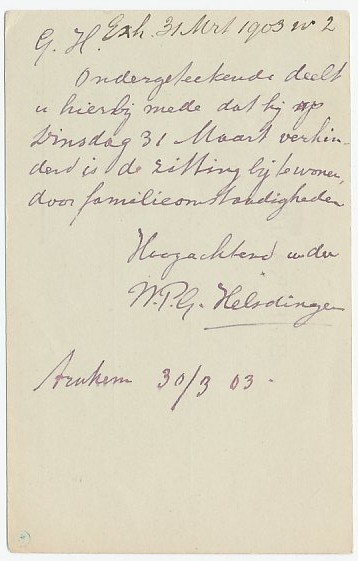 G. H. Exh. 31 Mrt 1903 no 2
Ondergeteekende deelt
u hierbij mede dat hij op
Dinsdag 31 Maart verhin-
derd is de zitting bij te wonen,
door familieomstandigheden
Hoogachtend
W.P.G. Helsdingen
Arnhem 30/3 03.